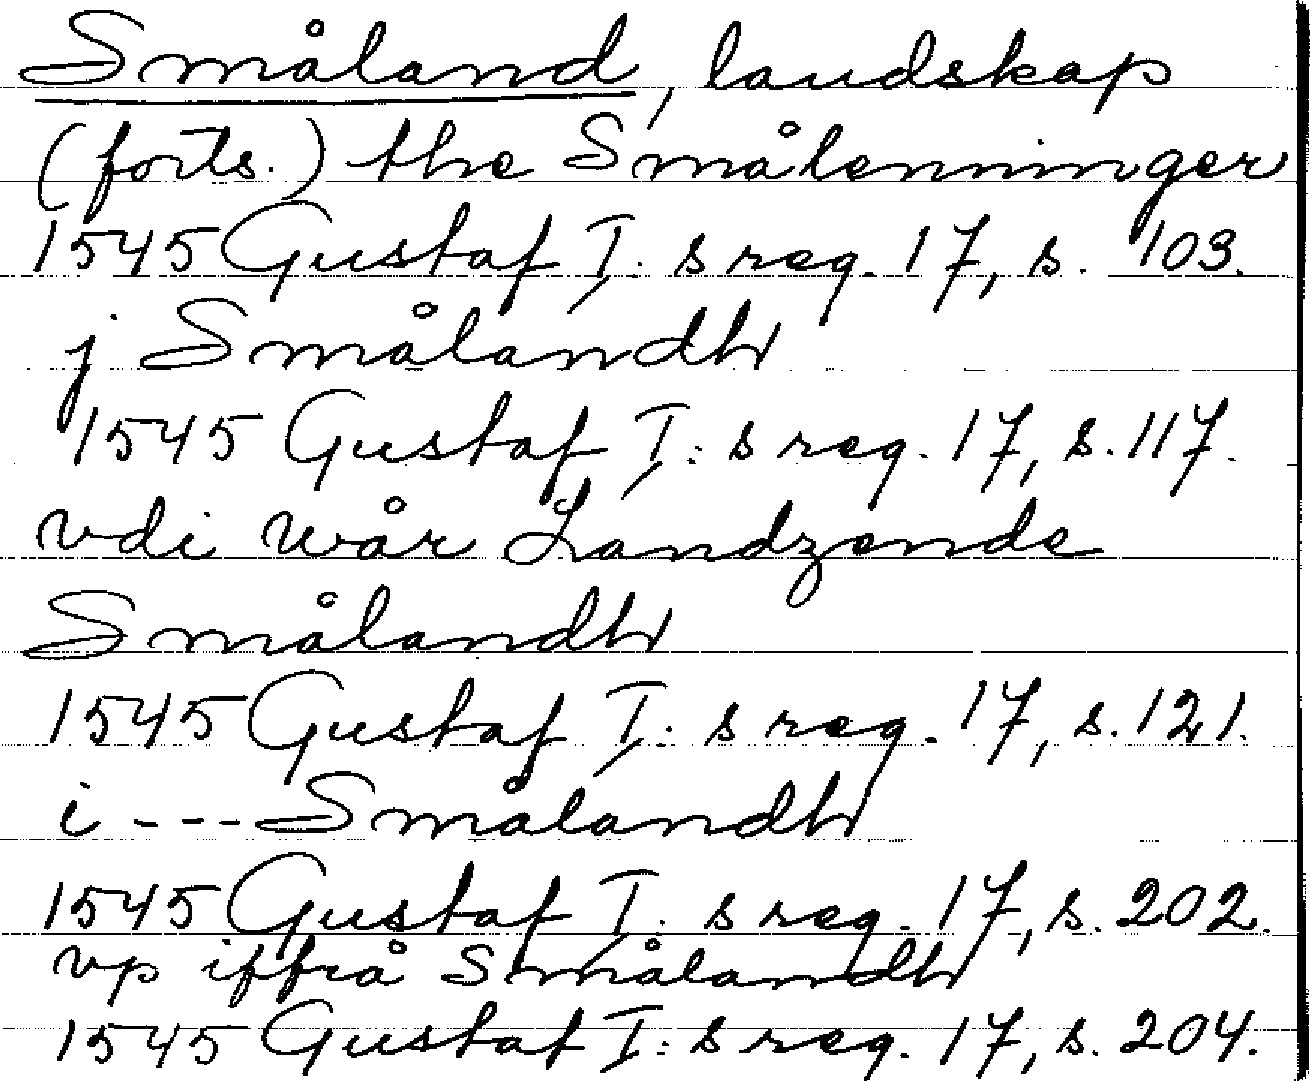 Småland, landskap
(forts.) the Smålenninger
1545 Gustaf I:s reg. 17, s. 103.
j Smålandh
1545 Gustaf I:s reg. 17, s. 117.
vdi wår Landzende
Smålandh
1545 Gustaf I:s reg. 17, s. 121.
i --- Smålandh
1545 Gustaf I:s reg. 17, s. 202.
vp iffrå Smålandh
1545 Gustaf I:s reg. 17, s. 204.